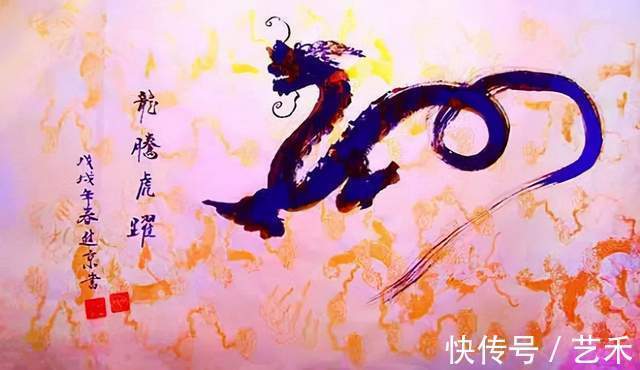 龍騰虎躍
戊戌年春京書
快传号 / 艺禾